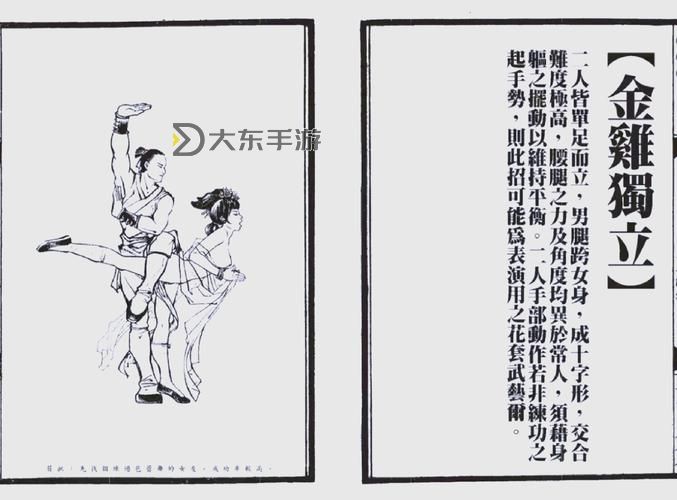 【金雞獨立】
二人皆單足而立，男腿跨女身，成十字形，交合
難度極高，腰腿之力及角度均異於常人，須藉身
軀之擺動以維持平衡。二人手部動作若非練功之
起手勢，則此招可能爲表演用之花套武藝爾。
大东手游